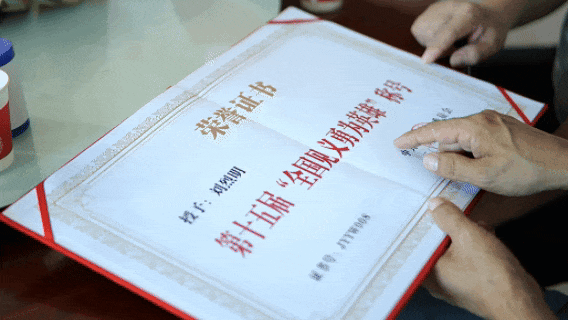 荣誉证书
授予：刘烈明
第十五届“全国见义勇为英雄”称号
证书号：JYYW008